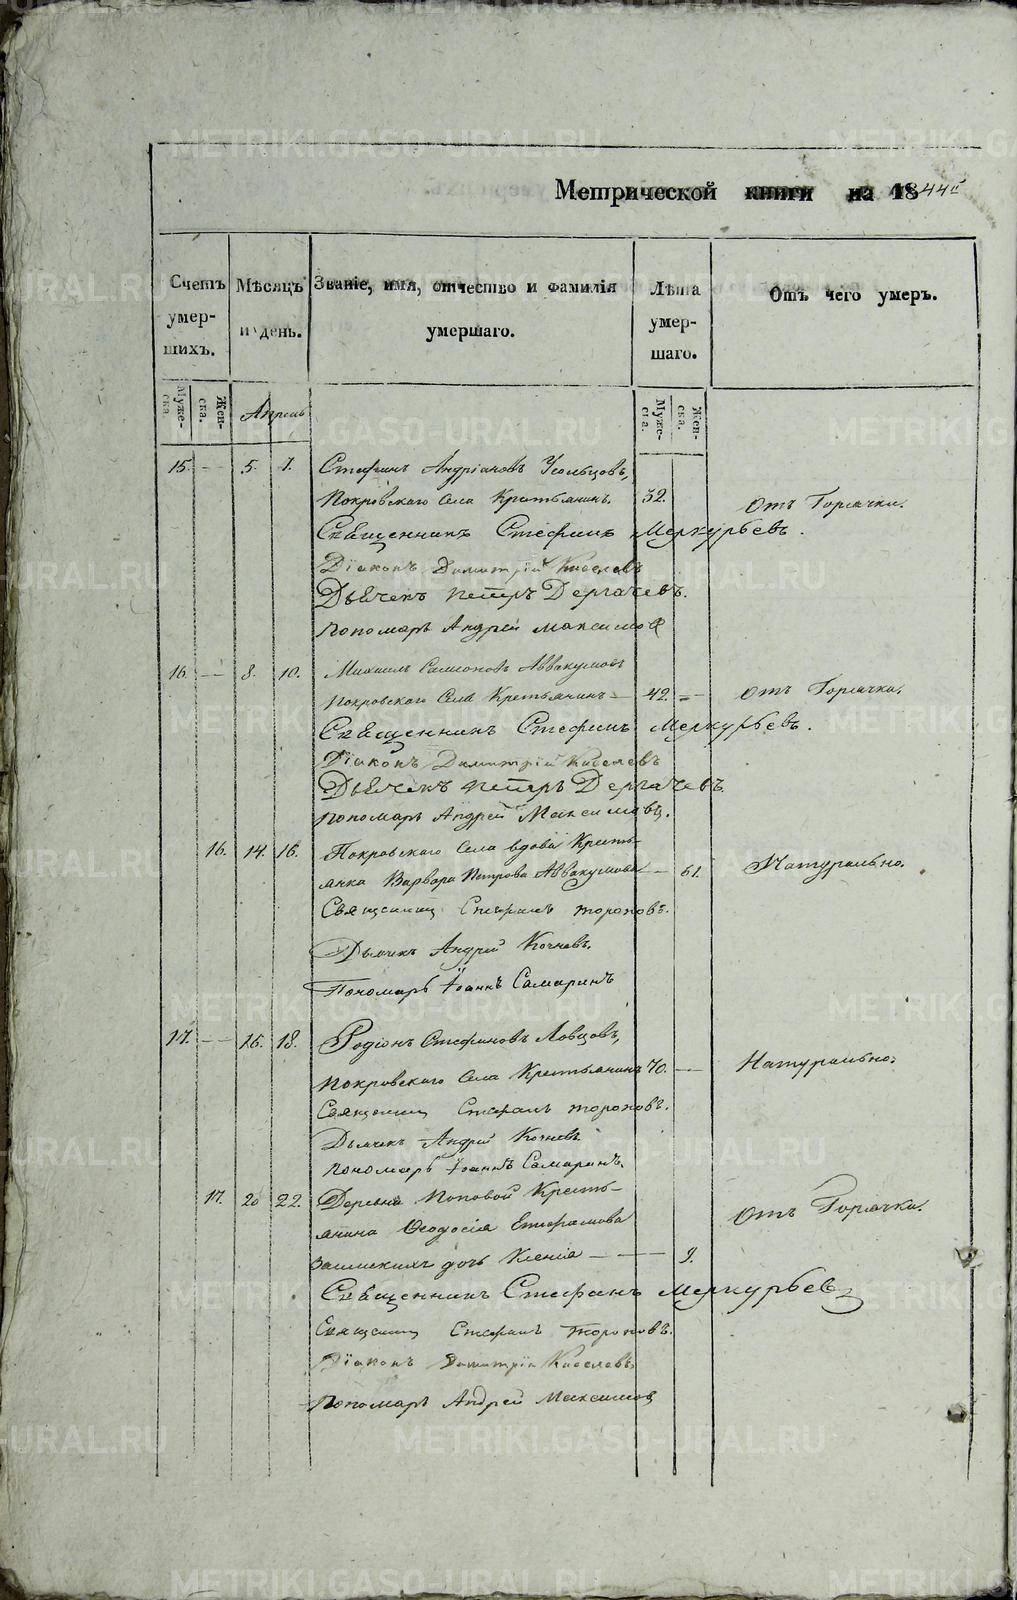 Метрической книги на 1844й
Счетъ умер- шихъ.
Мѣсяцъ и день.
Званіе, имя, отчество и фамилія умершаго.
Лѣта умер- шаго.
Отъ чего умеръ.
Муже- ска.
Жен- ска.
Апрель
Муже- ска.
Жен- ска.
15. — 5. 7. Стефанъ Андріановъ Усольцовъ,
Покровскаго Села Крестьянинъ. 32. Отъ Горячки.
Священникъ Стефанъ Меркурьевъ.
Діаконъ Димитрій Киселевъ
Дьячекъ Петръ Дергачевъ.
Пономарь Андрей Максимов
16. — 8. 10. Михаилъ Самсоновъ Аввакумовъ
Покровскаго Села Крестьянинъ — 42. — Отъ Горячки.
Священникъ Стефанъ Меркурьевъ.
Діаконъ Димитрій Киселевъ
Дьячекъ Петръ Дергачевъ
Пономарь Андрей Максимовъ.
16. 14. 16. Покровскаго Села вдова Кресть-
янка Варвара Петрова Аввакумова — 61. Натурально.
Священникъ Стефанъ Тороповъ.
Дьячекъ Андрей Кочневъ.
Пономарь Іоаннъ Самаринъ
17. — 16. 18. Родіонъ Стефановъ Ловцовъ,
Покровскаго Села Крестьянинъ 70. — Натурально.
Священникъ Стефанъ Тороповъ.
Дьячекъ Андрей Кочневъ.
Пономарь Іоаннъ Самаринъ.
17. 20 22. Деревни Поповой Кресть-
янина Феодосія Отъ Горячки.
дочь Ксенія — — — 9.
Священникъ Стефанъ Меркурьев
Священникъ Стефанъ Тороповъ.
Діаконъ Димитрій Киселевъ
Пономарь Андрей Максимов
METRIKI.GASO-URAL.RU